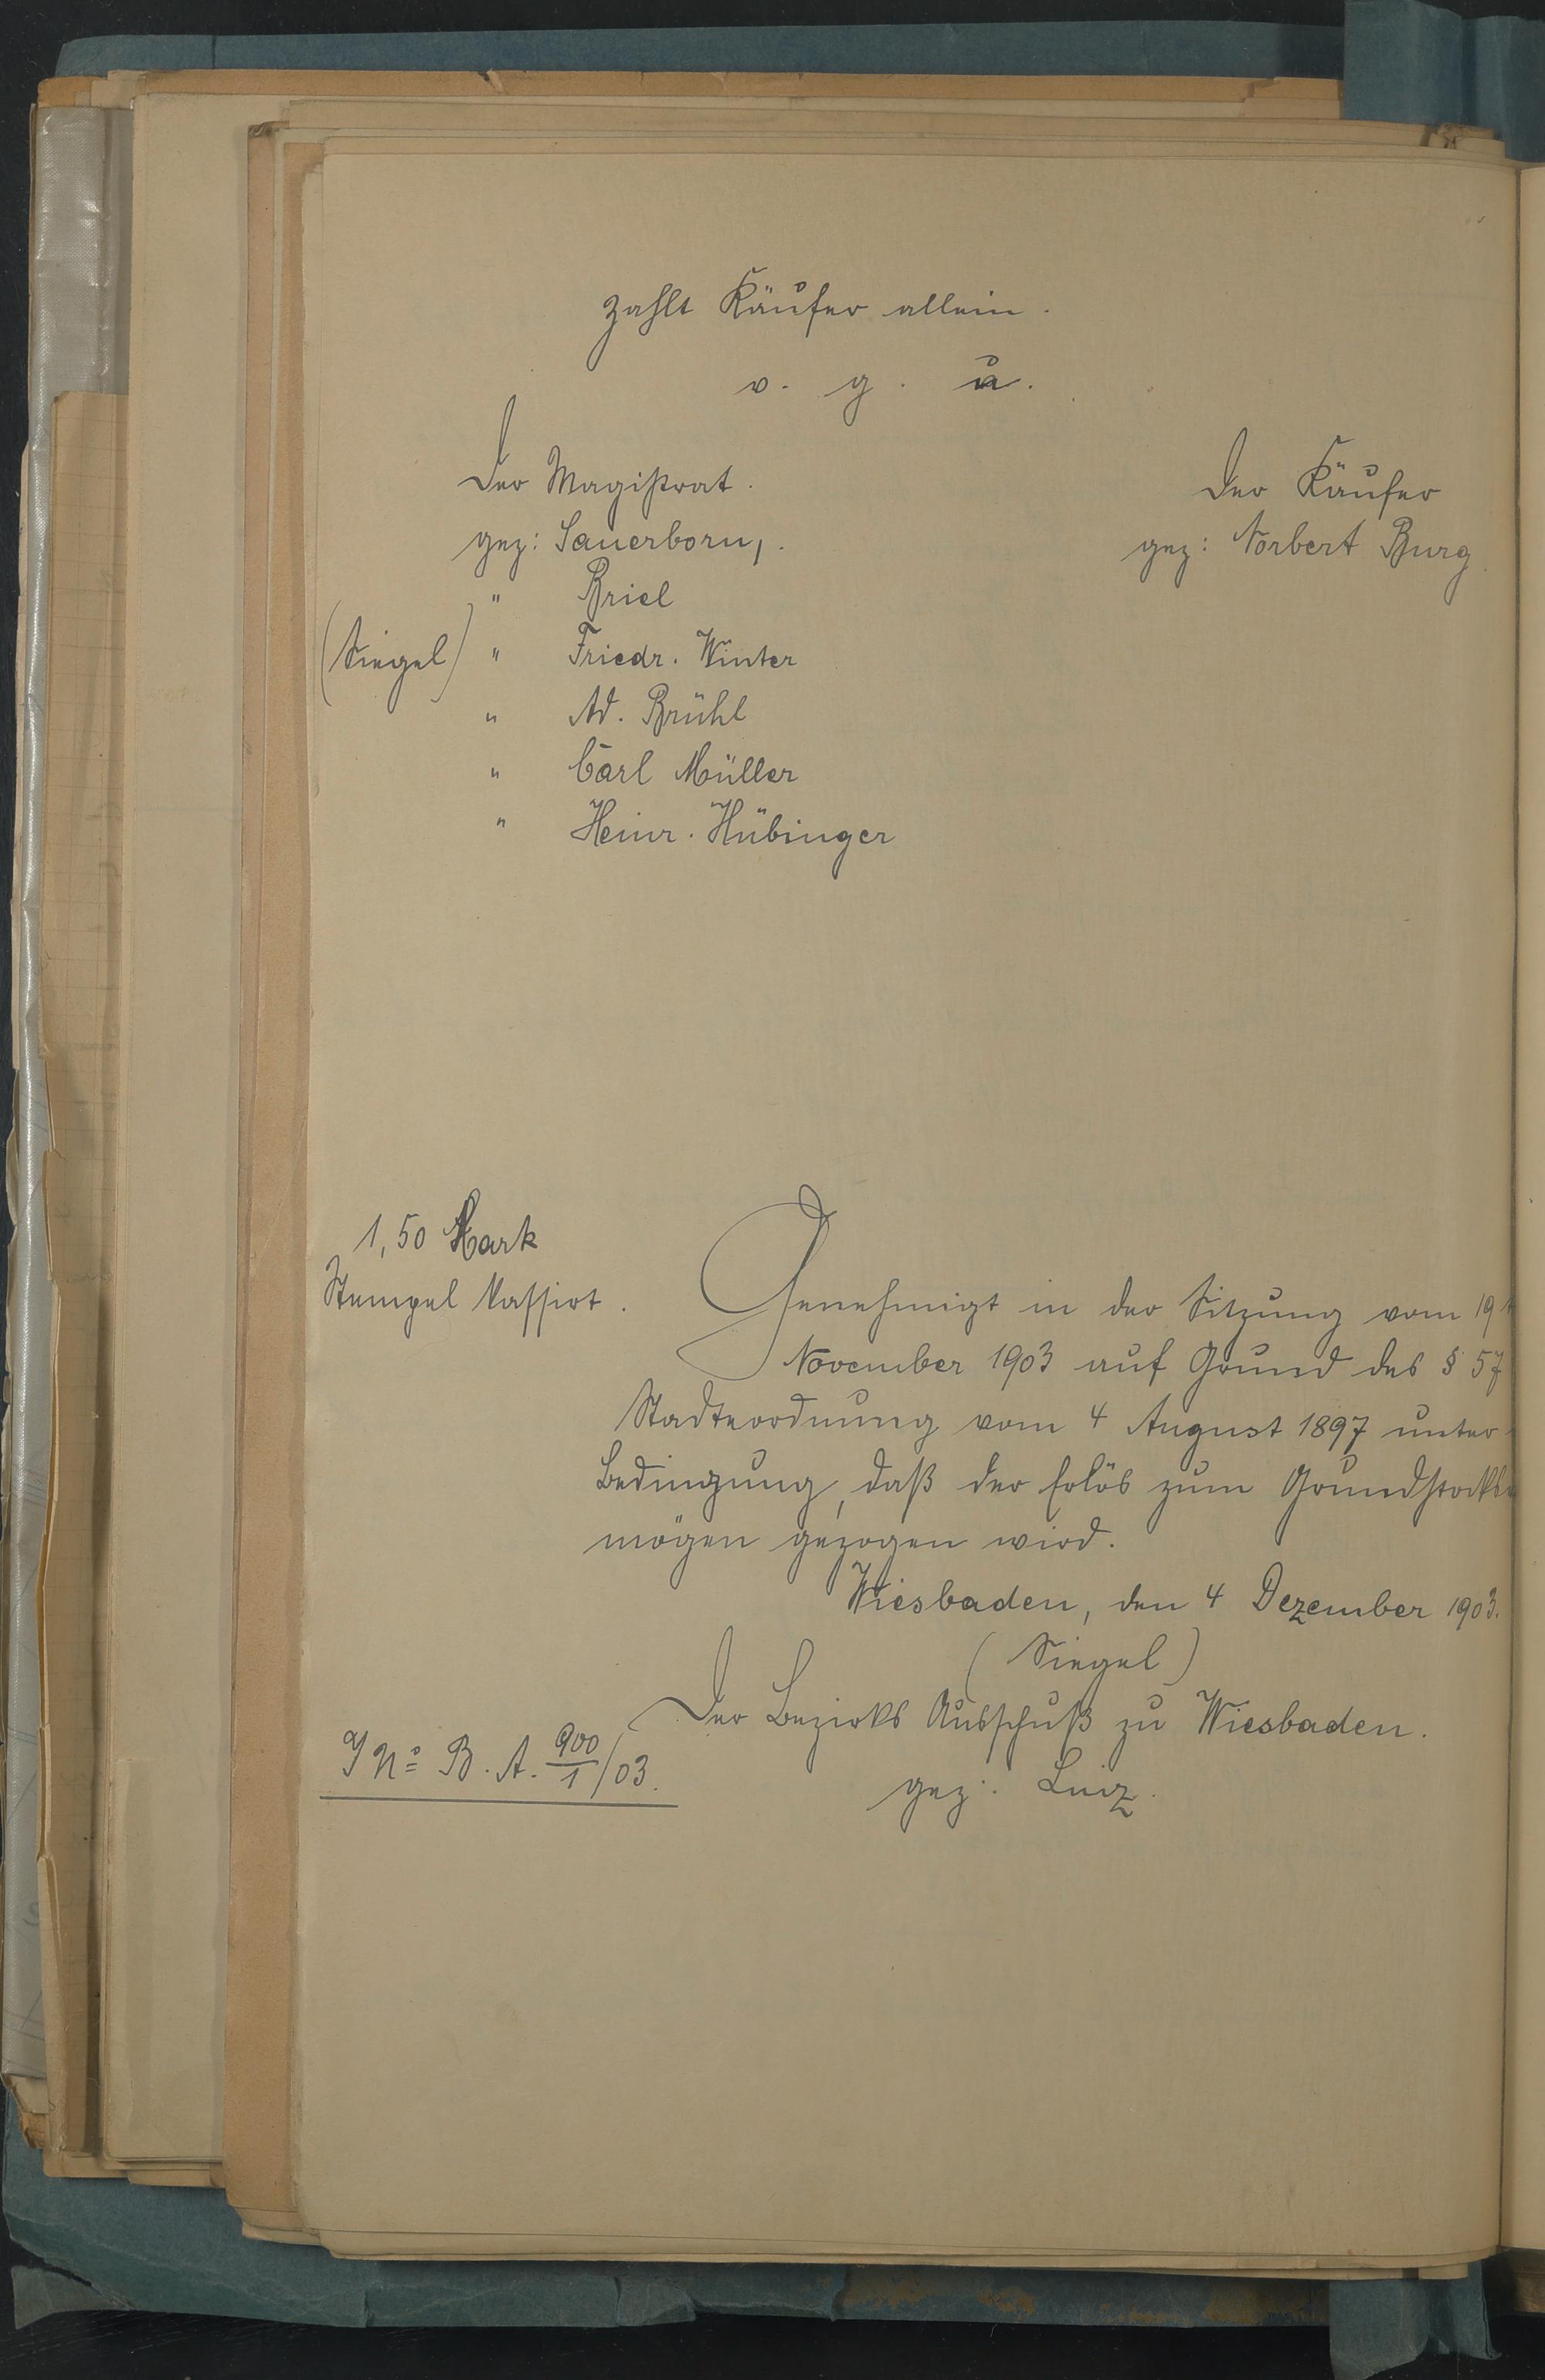 zahlt Käufer allein.
v. g. u.
Der Magistrat.
gez: Sauerborn,.
" Briel
(Siegel) " Friedr. Winter
" Ad. Brühl
" Carl Müller
" Heinr. Hübinger
Der Käufer
gez: Norbert Burg
1,50 Mark
Stempel kassirt.
Genehmigt in der Sitzung vom 19
November 1903 auf Grund des § 57
Stadteordnung vom 4 August 1897 unter
Bedingung, daß der Erlös zum Grundstocks
mögen gezogen wird.
Wiesbaden, den 4 Dezember 1903.
(Siegel)
Der Bezirks Ausschuß zu Wiesbaden.
gez:
J No B. A. 900/1/03.